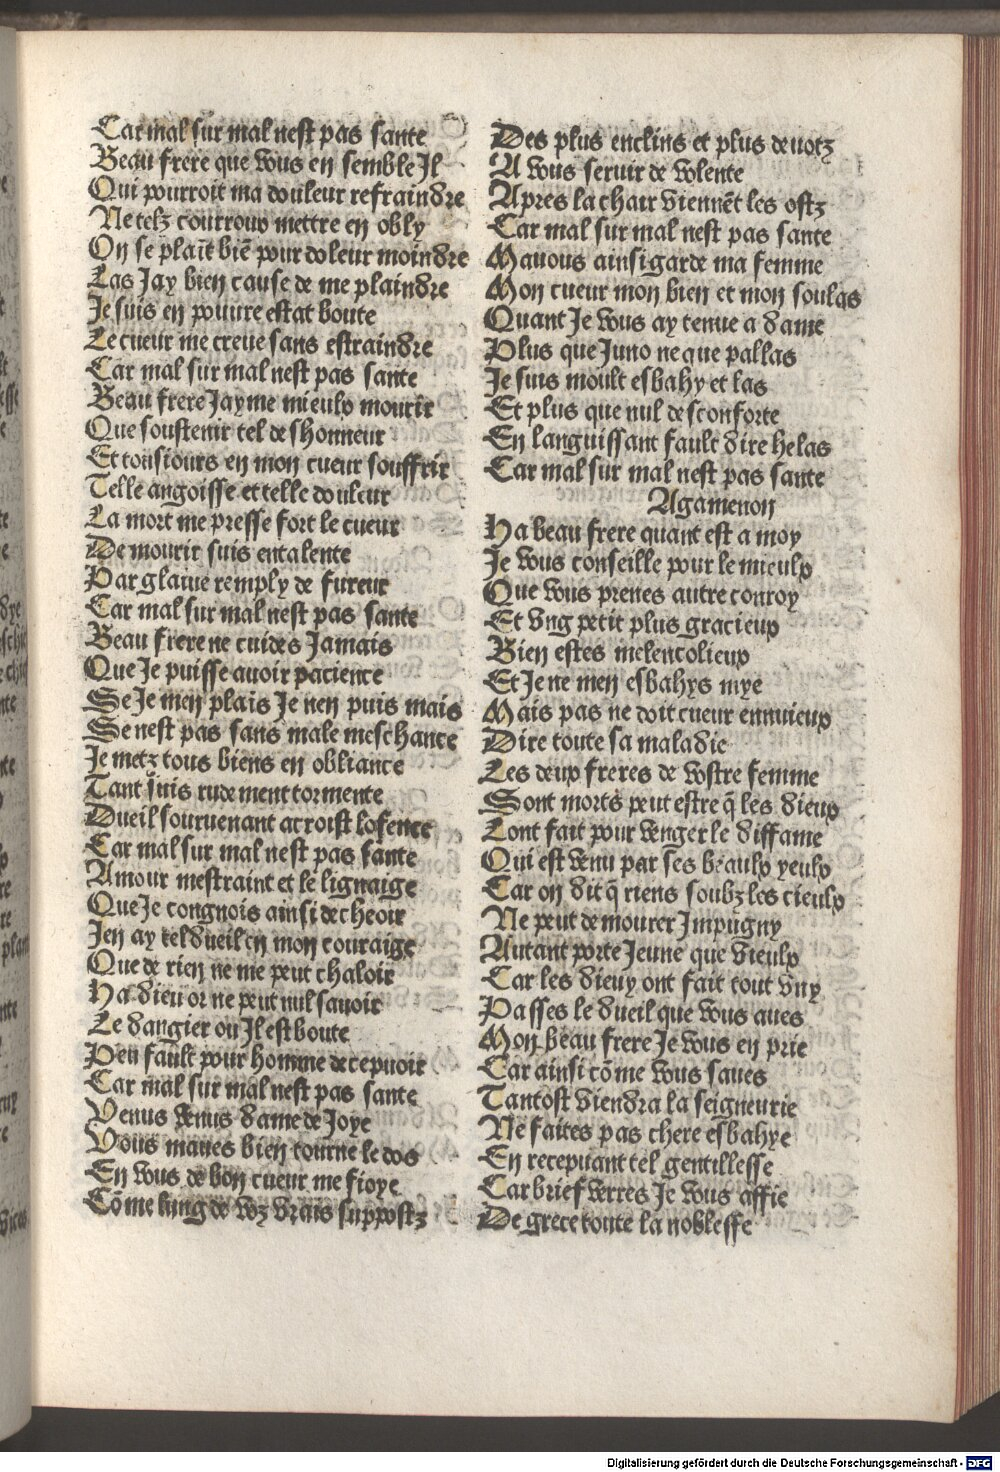 Car mal sur mal nest pas sante
Beau frere que vous en semble Jl
Qui pourroit ma douleur refraindre
Ne telz courroux mettre en obly
On se plaīt biē pour doleur moindre
Las Jay bien cause de me plaindre
Je suis en pouure estat boute
Le cueur me creue sans estraindre
Car mal sur mal nest pas sante
Beau frere Jayme mieulx mourir
Que soustenir tel deshonneur
Et tousiours en mon cueur souffrir
Telle angoisse et telle douleur
La mort me presse fort le cueur
De mourir suis entalente
Par glaiue remply de fureur
Car mal sur mal nest pas sante
Beau frere ne cuides Jamais
Que Je puisse auoir pacience
Se Je men plais Je nen puis mais
Se nest pas sans male meschance
Je metz tous biens en obliance
Tant suis rudement tormente
Dueil souruenant acroist lofence
Car mal sur mal nest pas sante
Amour mestraint et le lignaige
Que Je congnois ainsi decheoir
Jen ay tel dueil en mon couraige
Que de rien ne me peut chaloir
Ha dieu or ne peut nul sauoir
Le dangier ou Jl est boute
Peu fault pour homme decepuoir
Car mal sur mal nest pas sante
Venus venus dame de Joye
Vous maues bien tourne le dos
En vous de bon cueur me fioye
Cōme lung de voz vrais suppostz
Des plus enclins et plus deuotz
A vous seruir de volente
Apres la chair viennēt les ostz
Car mal sur mal nest pas sante
Mauous ainsi garde ma femme
Mon cueur mon bien et mon soulas
Quant Je vous ay tenue a dame
Plus que Juno ne que pallas
Je suis moult esbahy et las
Et plus que nul desconforte
En languissant fault dire helas
Car mal sur mal nest pas sante
Agamenon
Ha beau frere quant est a moy
Je vous conseille pour le mieulx
Que vous prenes autre conroy
Et vng petit plus gracieux
Bien estes melencolieux
Et Je ne men esbahys mye
Mais pas ne doit cueur ennuieux
Dire toute sa maladie
Les deux freres de vostre femme
Sont morts peut estre q̄ les dieux
Lont fait pour venger le diffame
Qui est venu par ses beaulx yeulx
Car on dit q̄ riens soubz les cieulx
Ne peut demourer Jmpugny
Autant porte Jeune que vieulx
Car les dieux ont fait tout vny
Passes le dueil que vous aues
Mon beau frere Je vous en prie
Car ainsi cōme vous saues
Tantost viendra la seigneurie
Ne faites pas chere esbahye
En recepuant tel gentillesse
Car brief verres Je vous affie
De grece toute la noblesse
Digitalisierung gefördert durch die Deutsche Forschungsgemeinschaft - DFG